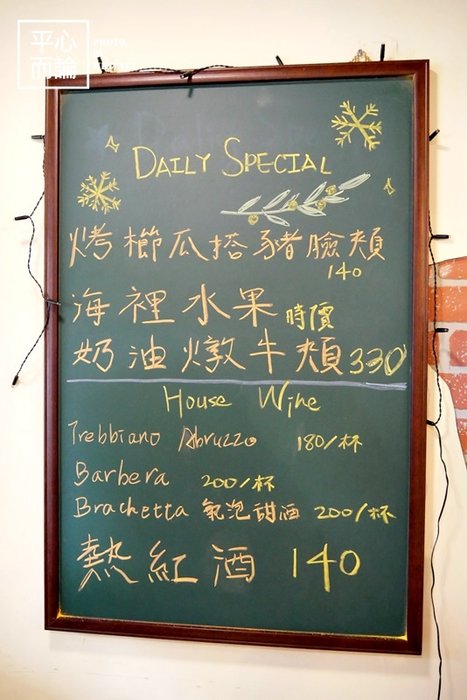 平心
而論
PHOTO
DAILY SPECIAL
烤櫛瓜搭豬臉頰
140
海裡水果 時價
奶油燉牛頰 330
House Wine
Trebbiano Abruzzo 180/杯
Barbera 200/杯
Brachetta 氣泡甜酒 200/杯
熱紅酒 140